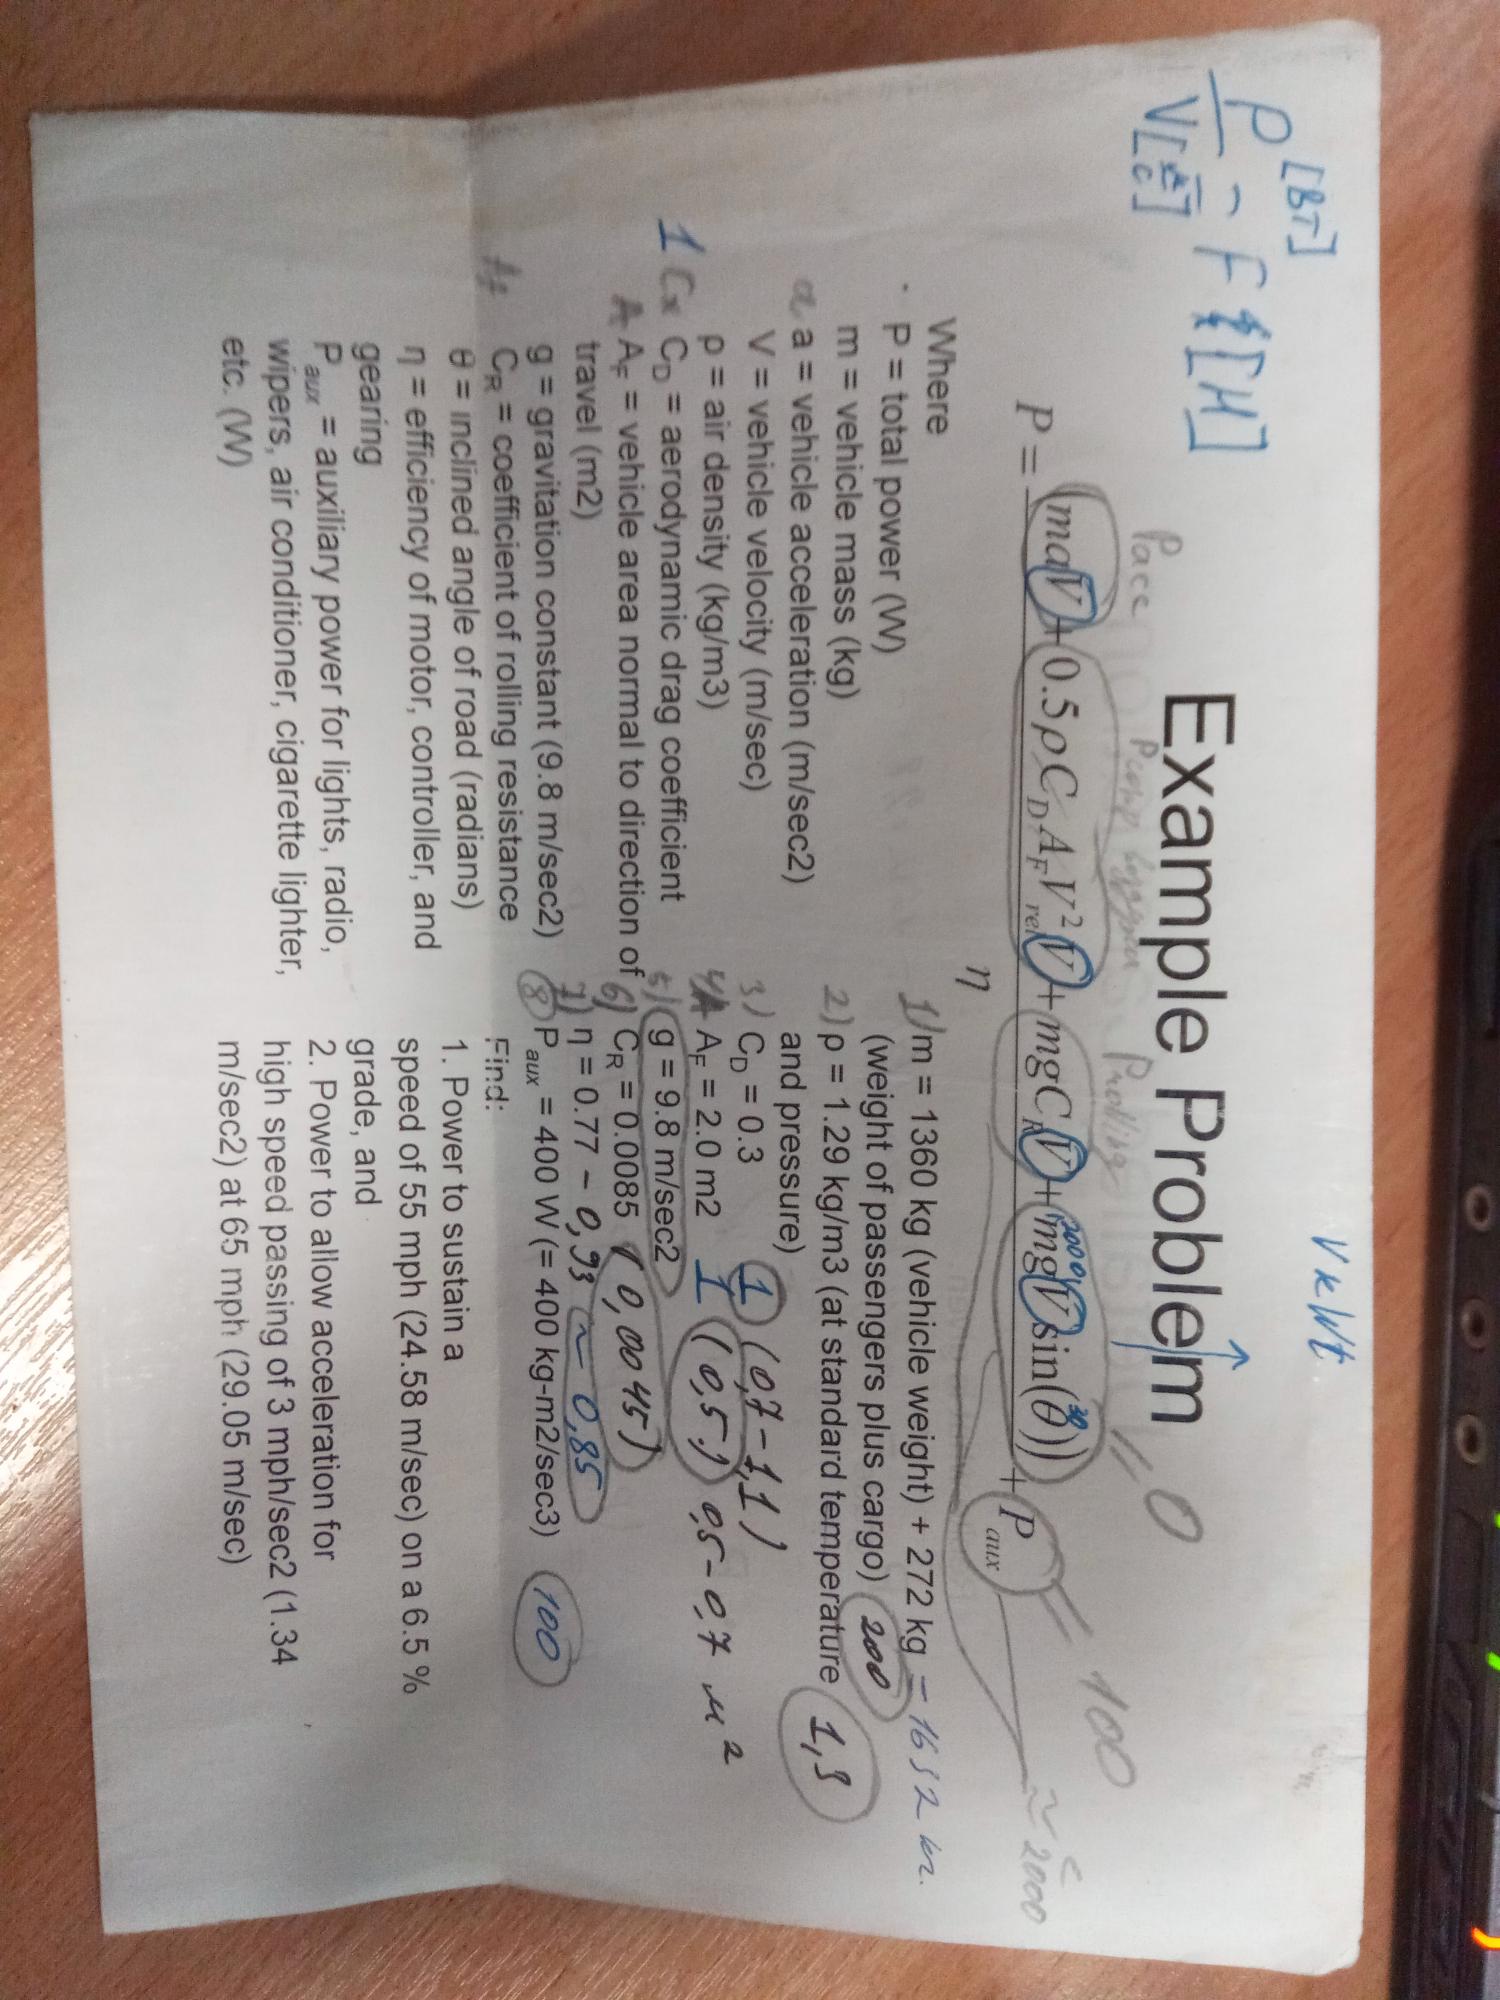 V кWt
P [Вт]
V [м/с]
= F [Н]
Example Problem
Pacc
Prolling
= 0
P = (maV + 0.5ρC_D A_F V²_rel V + mgC_R V + mgV sin(θ)) / η + P_aux
200
30
= 100
≈ 2000
Where
· P = total power (W)
m = vehicle mass (kg)
a a = vehicle acceleration (m/sec2)
V = vehicle velocity (m/sec)
ρ = air density (kg/m3)
1 Cx C_D = aerodynamic drag coefficient
A A_F = vehicle area normal to direction of
travel (m2)
g = gravitation constant (9.8 m/sec2)
C_R = coefficient of rolling resistance
θ = inclined angle of road (radians)
η = efficiency of motor, controller, and
gearing
P_aux = auxiliary power for lights, radio,
wipers, air conditioner, cigarette lighter,
etc. (W)
1) m = 1360 kg (vehicle weight) + 272 kg = 1632 кг.
(weight of passengers plus cargo) 200
2) ρ = 1.29 kg/m3 (at standard temperature 1,3
and pressure)
3) C_D = 0.3 1 (0,7-1,1)
4) A_F = 2.0 m2 1 (0,5) 0,5-0,7 м²
5) g = 9.8 m/sec2
6) C_R = 0.0085 (0,0045)
7) η = 0.77 - 0,93 ~ 0,85
8 P_aux = 400 W (= 400 kg-m2/sec3) 100
Find:
1. Power to sustain a
speed of 55 mph (24.58 m/sec) on a 6.5 %
grade, and
2. Power to allow acceleration for
high speed passing of 3 mph/sec2 (1.34
m/sec2) at 65 mph (29.05 m/sec)